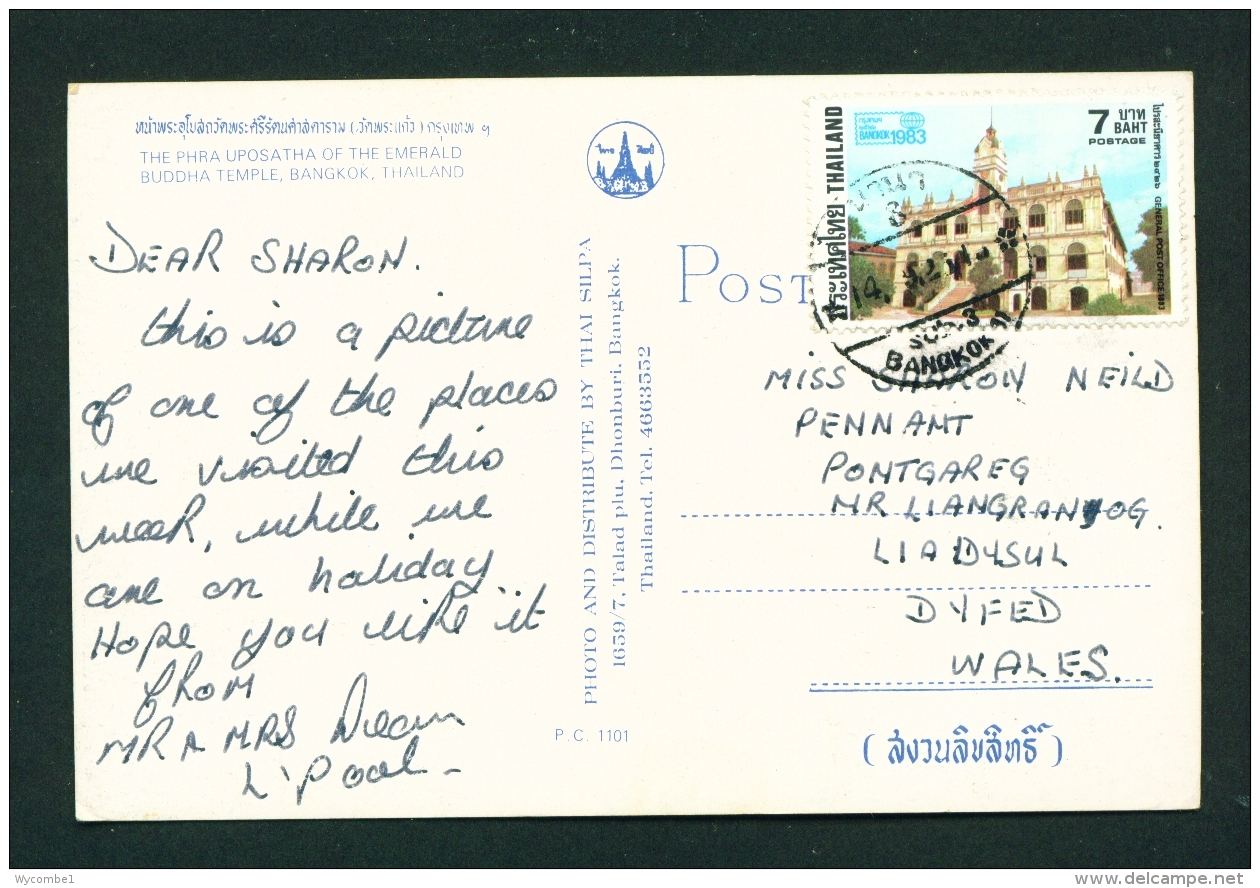 หน้าพระอุโบสถวัดพระศรีรัตนศาสดาราม (วัดพระแก้ว) กรุงเทพ ฯ
THE PHRA UPOSATHA OF THE EMERALD
BUDDHA TEMPLE, BANGKOK, THAILAND
DEAR SHARON.
this is a picture
of one of the places
we visited this
week, while we
are on holiday
Hope you like it
from
MR & MRS
L'Pool
PHOTO AND DISTRIBUTE BY THAI SILPA
1659/7, Talad plu, Dhonburi, Bangkok.
Thailand. Tel. 4663552
P.C. 1101
POST
ประเทศไทย THAILAND
BANGKOK 1983
7 บาท
BAHT
POSTAGE
ไปรษณียาคาร ๒๔๒๖ GENERAL POST OFFICE 1883
บางนา
8
14.
BANGKOK
MISS SHARON NEILD
PENNANT
PONTGAREG
NR LLANGRANNOG.
LLADYSUL
DYFED
WALES.
(สงวนลิขสิทธิ์)
Wycombe1